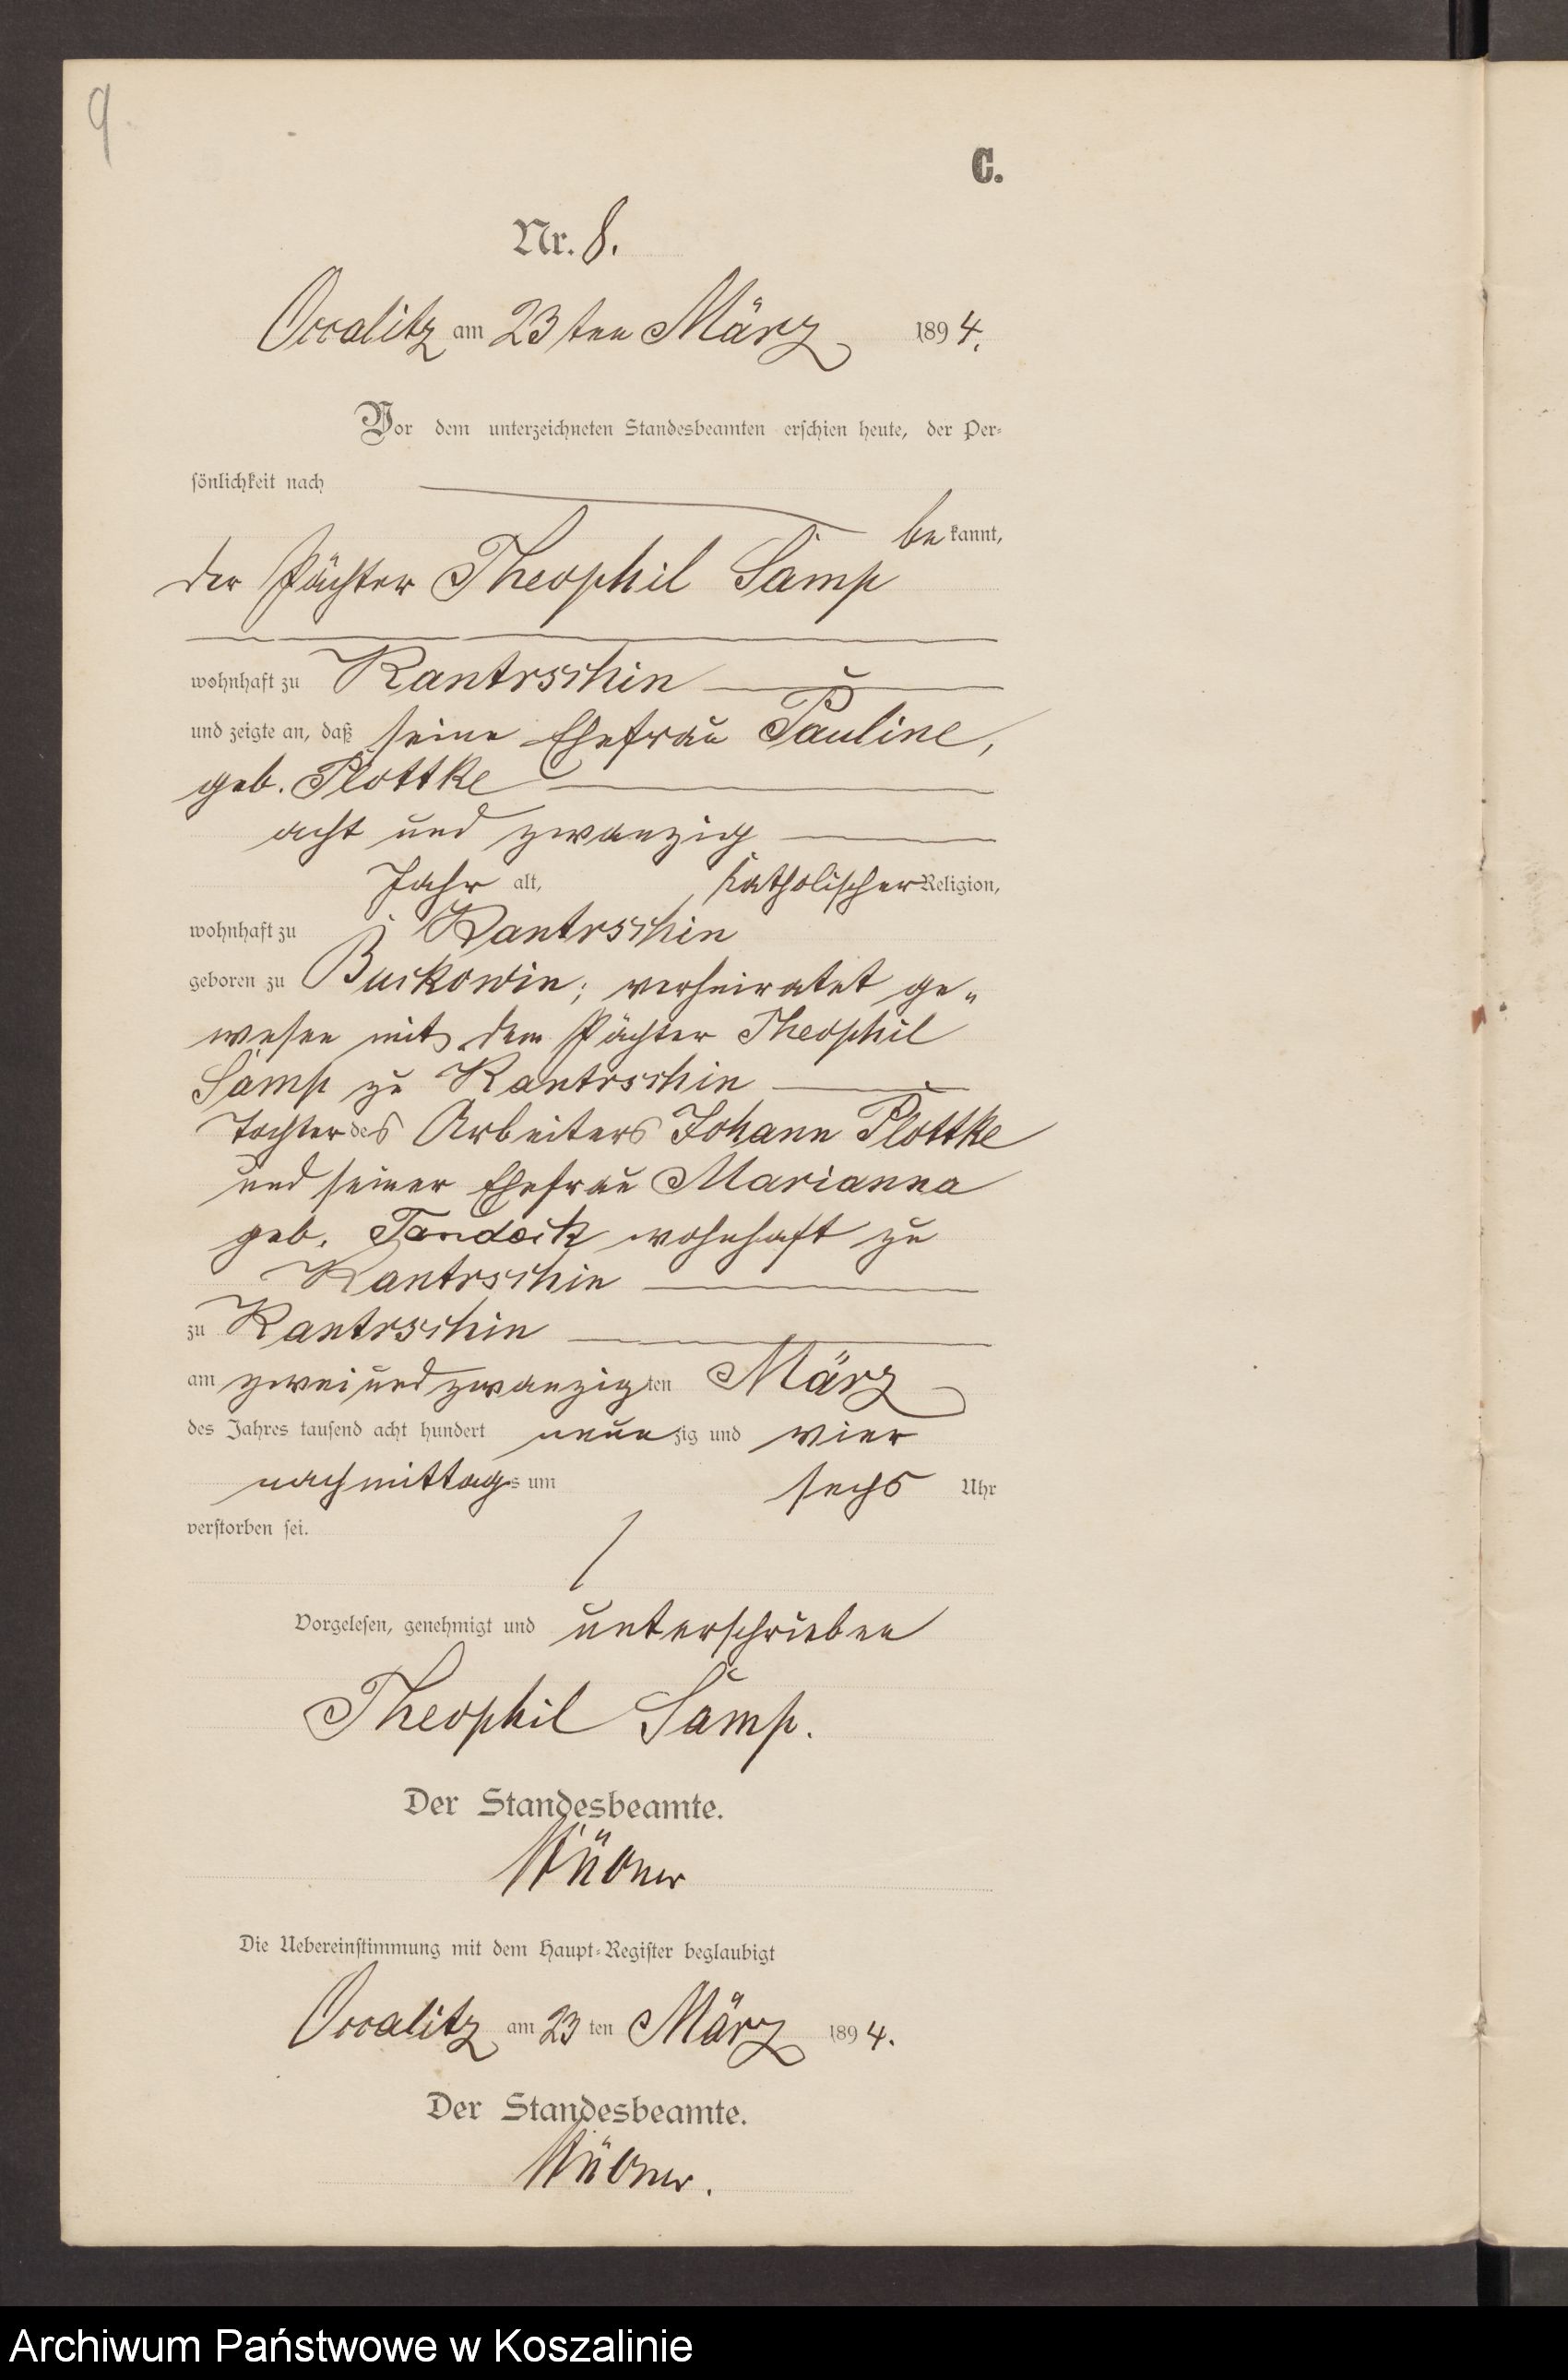 9
C.
Nr. 8.
Occalitz am 23ten März 1894.
Vor dem unterzeichneten Standesbeamten erschien heute, der Per-
sönlichkeit nach
bekannt,
der Pächter Theophil Samp
wohnhaft zu Kantrschin
und zeigte an, daß seine Ehefrau Pauline,
geb. Plottke
acht und zwanzig
Jahr alt, katholischer Religion,
wohnhaft zu Kantrschin
geboren zu Buckowin; verheiratet ge-
wesen mit dem Pächter Theophil
Samp zu Kantrschin
Tochter des Arbeiters Johann Plottke
und seiner Ehefrau Marianna
geb. wohnhaft zu
Kantrschin
zu Kantrschin
am zweiundzwanzigten März
des Jahres tausend acht hundert neunzig und vier
nachmittags um sechs Uhr
verstorben sei.
Vorgelesen, genehmigt und unterschrieben
Theophil Samp.
Der Standesbeamte.
Die Uebereinstimmung mit dem Haupt-Register beglaubigt
Occalitz am 23ten März 1894.
Der Standesbeamte.
Archiwum Państwowe w Koszalinie